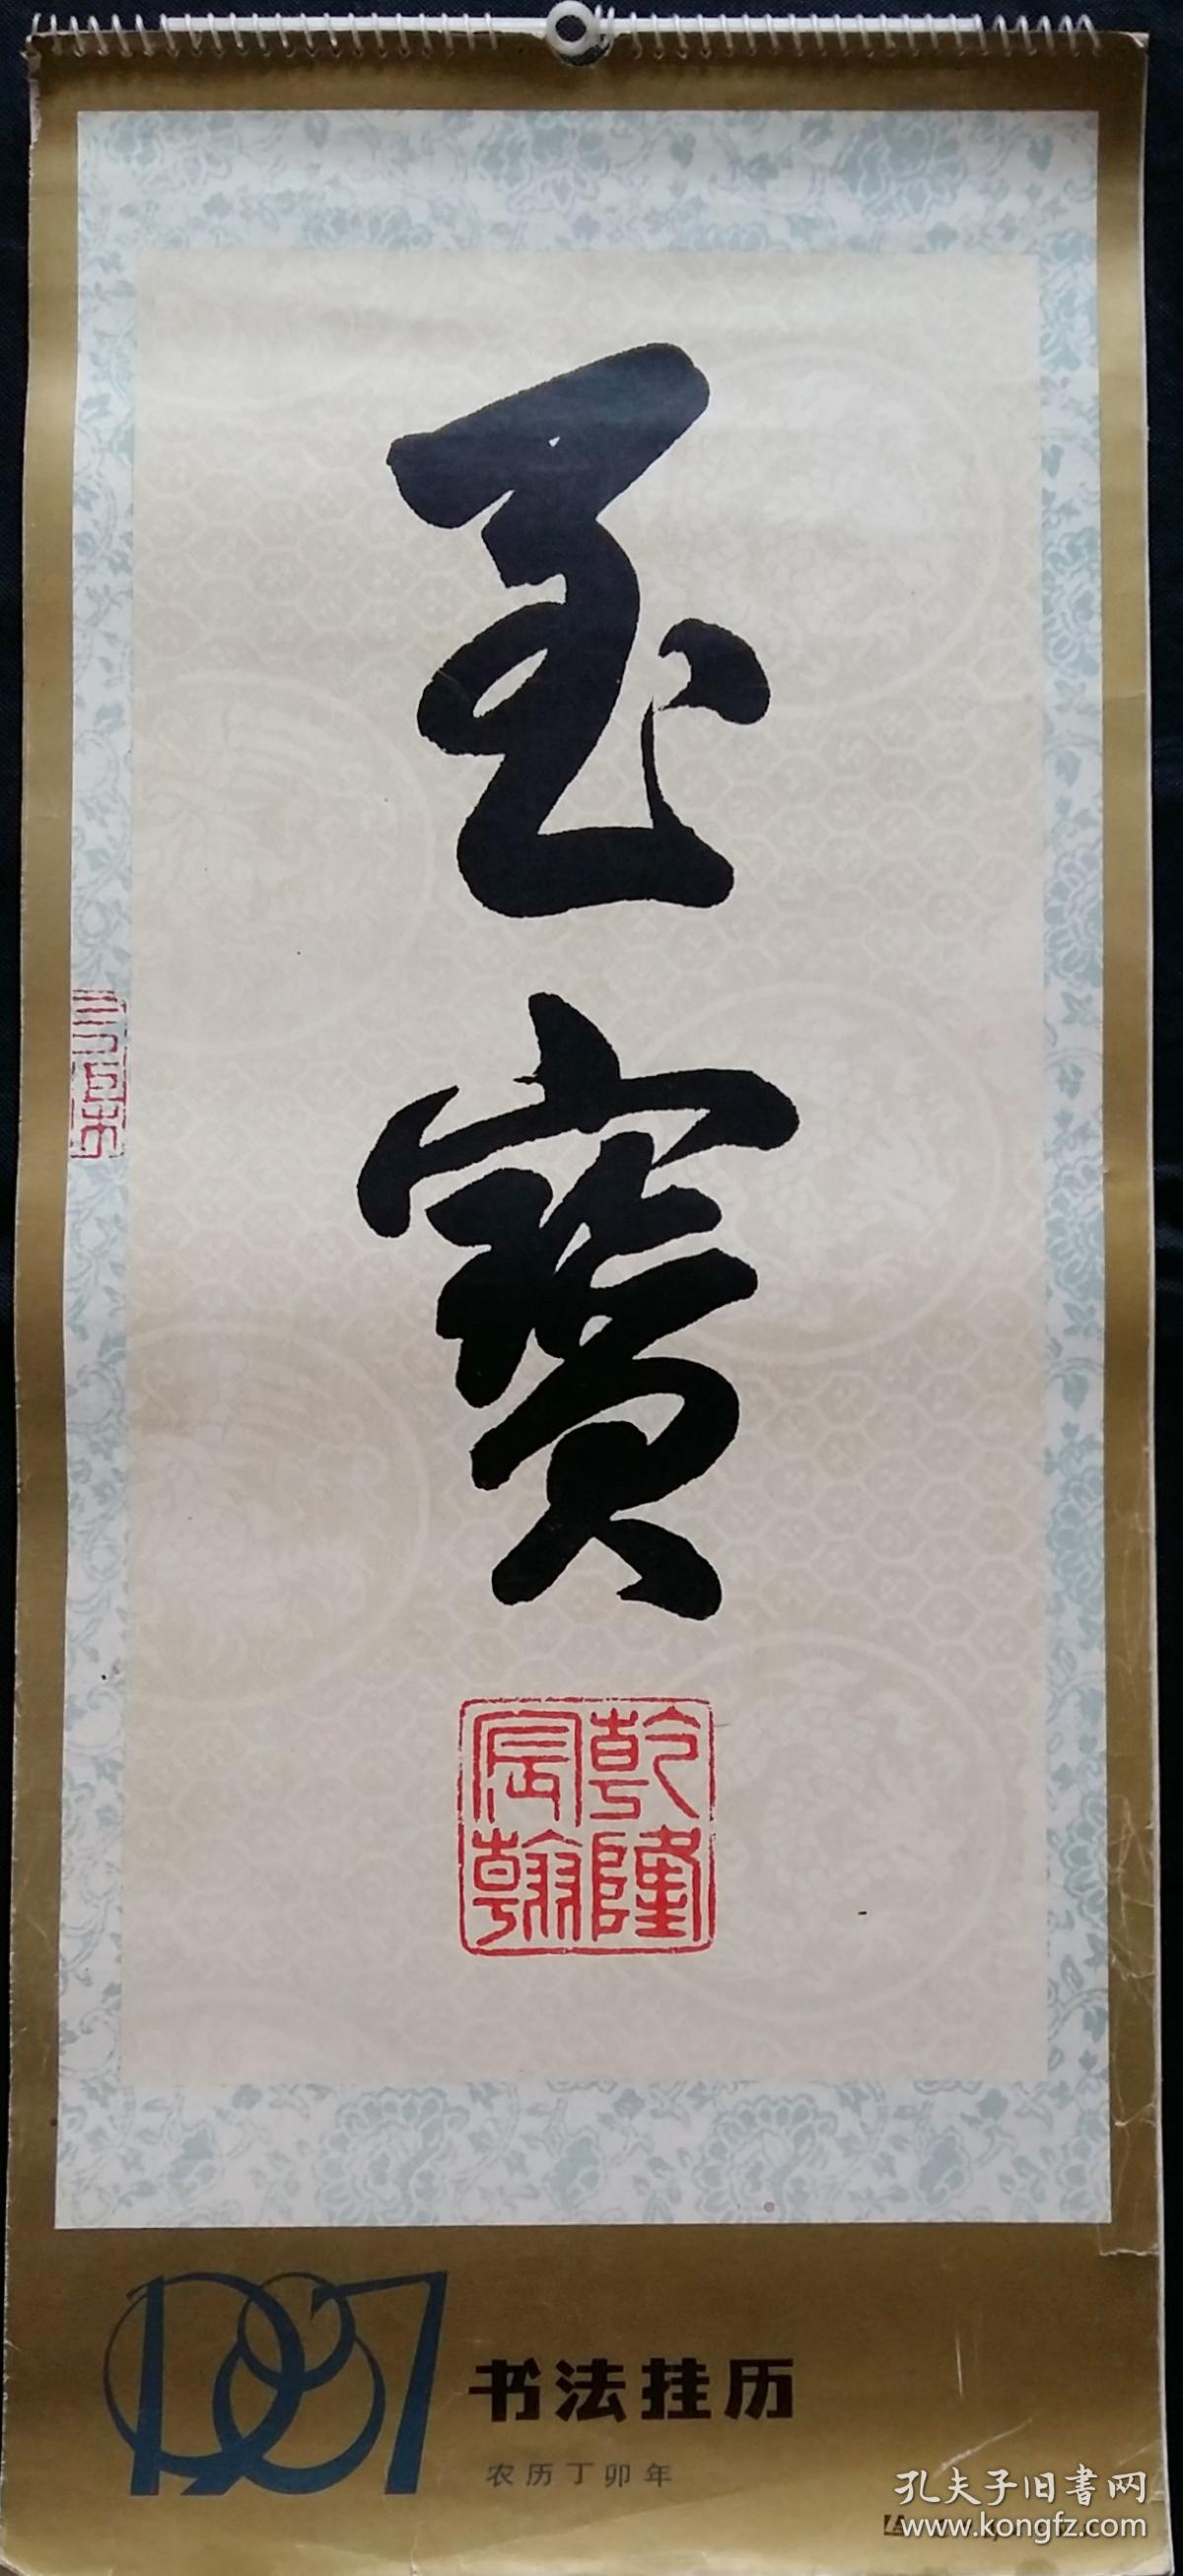 玉寶
乾隆
宸翰
1987
书法挂历
农历丁卯年
孔夫子旧書网
www.kongfz.com